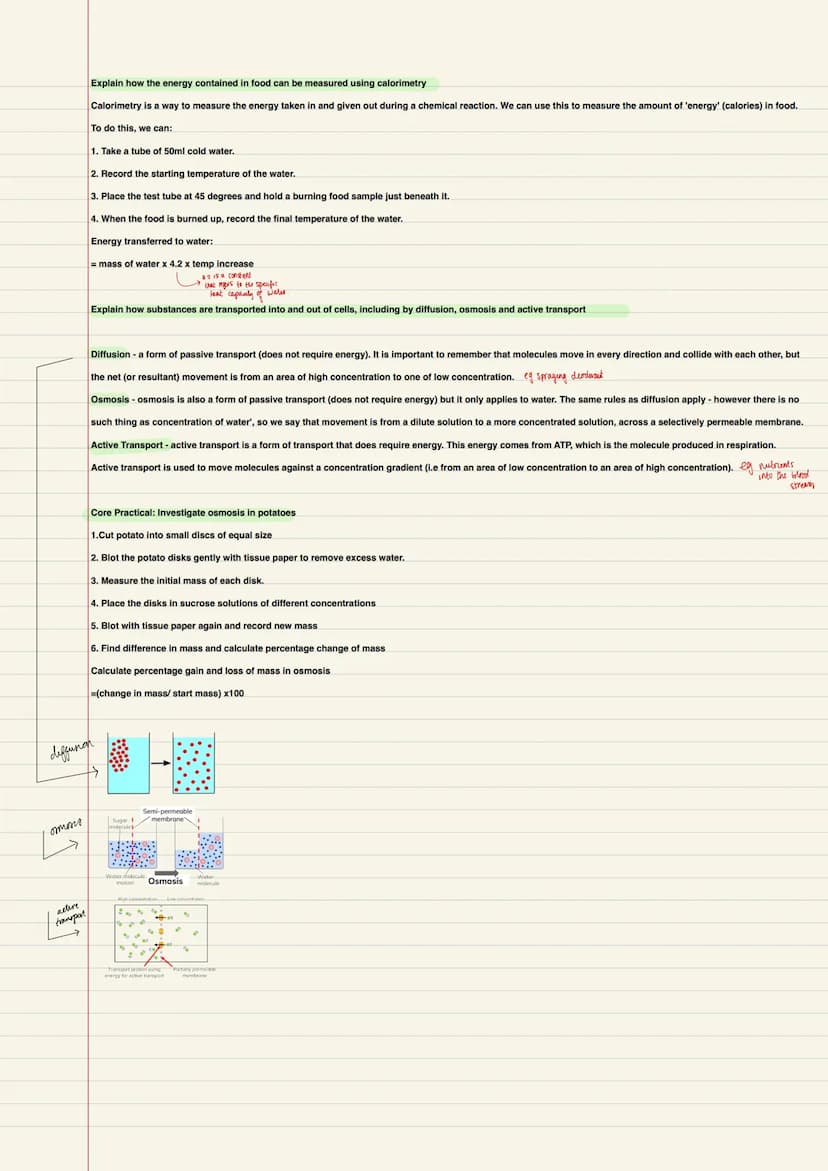 Explain how the energy contained in food can be measured using calorimetry
Calorimetry is a way to measure the energy taken in and given out during a chemical reaction. We can use this to measure the amount of 'energy' (calories) in food.
To do this, we can:
1. Take a tube of 50ml cold water.
2. Record the starting temperature of the water.
3. Place the test tube at 45 degrees and hold a burning food sample just beneath it.
4. When the food is burned up, record the final temperature of the water.
Energy transferred to water:
= mass of water x 4.2 x temp increase
is a constant
that refers to the specific
heat capacity of water
Explain how substances are transported into and out of cells, including by diffusion, osmosis and active transport
Diffusion - a form of passive transport (does not require energy). It is important to remember that molecules move in every direction and collide with each other, but
the net (or resultant) movement is from an area of high concentration to one of low concentration. eg spraying deodorant
Osmosis - osmosis is also a form of passive transport (does not require energy) but it only applies to water. The same rules as diffusion apply - however there is no
such thing as concentration of water', so we say that movement is from a dilute solution to a more concentrated solution, across a selectively permeable membrane.
Active Transport - active transport is a form of transport that does require energy. This energy comes from ATP, which is the molecule produced in respiration.
Active transport is used to move molecules against a concentration gradient (i.e from an area of low concentration to an area of high concentration). eg nutrients
into the blood
stream
Core Practical: Investigate osmosis in potatoes
1.Cut potato into small discs of equal size
2. Blot the potato disks gently with tissue paper to remove excess water.
3. Measure the initial mass of each disk.
4. Place the disks in sucrose solutions of different concentrations
5. Blot with tissue paper again and record new mass
6. Find difference in mass and calculate percentage change of mass
Calculate percentage gain and loss of mass in osmosis
=(change in mass/ start mass) x100
diffusion
osmosis
Semi-permeable
membrane
Sugar
molecules
Water molecule
Osmosis
Water
molecule
active
transport
High concentration
Low concentration
Transport protein using
energy for active transport
Partially permeable
membrane